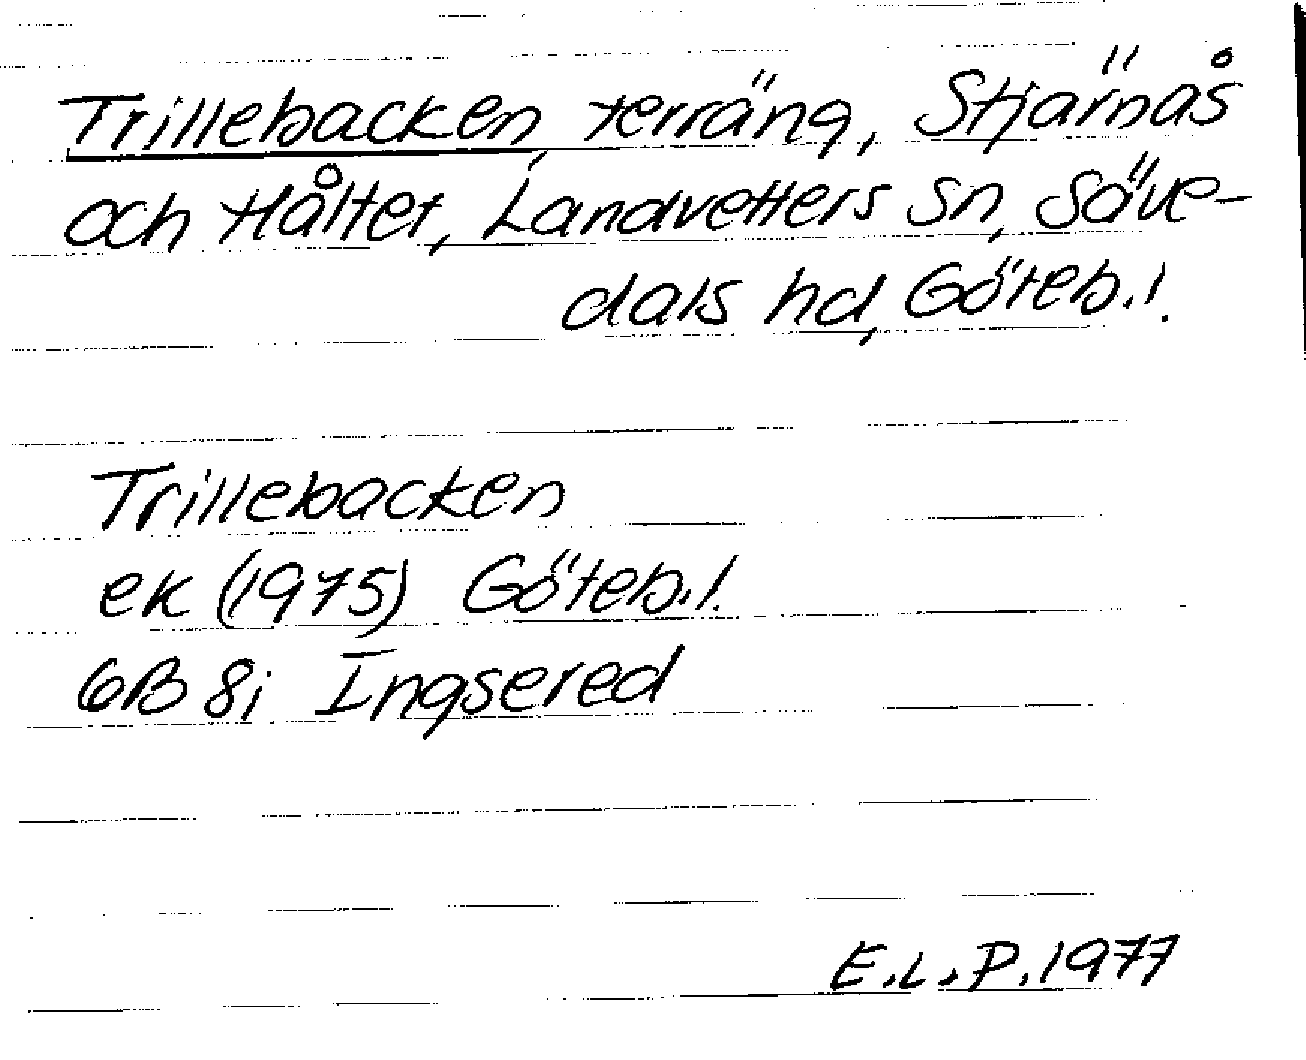 Trillebacken, terräng, Stjärnås
och Håltet, Landvetters sn, Säve-
dals hd, Göteb.l.
Trillebacken
ek (1975) Göteb.l.
6B 8i Ingsered
E.L.P. 1977